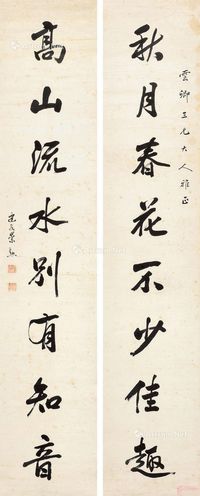 雲卿三兄大人雅正
秋月春花不少佳趣
高山流水別有知音